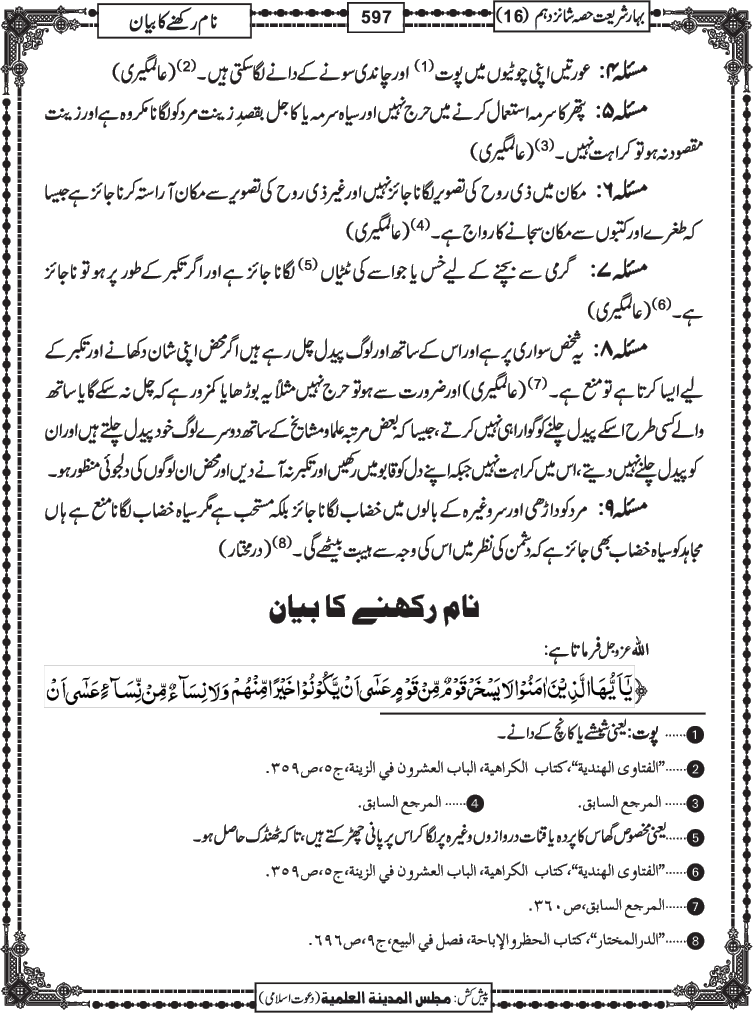 بہارِ شریعت حصہ شانزدہم (16)
597
نام رکھنے کا بیان
مسئلہ ۴: عورتیں اپنی چوٹیوں میں پوت (1) اور چاندی سونے کے دانے لگا سکتی ہیں۔ (2) (عالمگیری)
مسئلہ ۵: پتھر کا سرمہ استعمال کرنے میں حرج نہیں اور سیاہ سرمہ یا کاجل بقصدِ زینت مرد کو لگانا مکروہ ہے اور زینت
مقصود نہ ہو تو کراہت نہیں۔ (3) (عالمگیری)
مسئلہ ۶: مکان میں ذی روح کی تصویر لگانا جائز نہیں اور غیر ذی روح کی تصویر سے مکان آراستہ کرنا جائز ہے جیسا
کہ طغرے اور کتبوں سے مکان سجانے کا رواج ہے۔ (4) (عالمگیری)
مسئلہ ۷: گرمی سے بچنے کے لیے خس یا جواسے کی ٹٹیاں (5) لگانا جائز ہے اور اگر تکبر کے طور پر ہو تو ناجائز
ہے۔ (6) (عالمگیری)
مسئلہ ۸: یہ شخص سواری پر ہے اور اس کے ساتھ اور لوگ پیدل چل رہے ہیں اگر محض اپنی شان دکھانے اور تکبر کے
لیے ایسا کرتا ہے تو منع ہے۔ (7) (عالمگیری) اور ضرورت سے ہو تو حرج نہیں مثلاً یہ بوڑھا یا کمزور ہے کہ چل نہ سکے گا یا ساتھ
والے کسی طرح اسکے پیدل چلنے کو گوارا ہی نہیں کرتے، جیسا کہ بعض مرتبہ علما و مشایخ کے ساتھ دوسرے لوگ خود پیدل چلتے ہیں اور ان
کو پیدل چلنے نہیں دیتے، اس میں کراہت نہیں جبکہ اپنے دل کو قابو میں رکھیں اور تکبر نہ آنے دیں اور محض ان لوگوں کی دلجوئی منظور ہو۔
مسئلہ ۹: مرد کو داڑھی اور سر وغیرہ کے بالوں میں خضاب لگانا جائز بلکہ مستحب ہے مگر سیاہ خضاب لگانا منع ہے ہاں
مجاہد کو سیاہ خضاب بھی جائز ہے کہ دشمن کی نظر میں اس کی وجہ سے ہیبت بیٹھے گی۔ (8) (درمختار)
نام رکھنے کا بیان
اللہ عزوجل فرماتا ہے:
﴿یٰۤاَیُّهَا الَّذِیْنَ اٰمَنُوْا لَا یَسْخَرْ قَوْمٌ مِّنْ قَوْمٍ عَسٰۤى اَنْ یَّكُوْنُوْا خَیْرًا مِّنْهُمْ وَ لَا نِسَآءٌ مِّنْ نِّسَآءٍ عَسٰۤى اَنْ
1 ...... پوت: یعنی شیشے یا کانچ کے دانے۔
2 ......”الفتاوی الهندية“، كتاب الكراهية، الباب العشرون في الزينة، ج٥، ص٣٥٩.
3 ...... المرجع السابق. 4 ...... المرجع السابق.
5 ......یعنی مخصوص گھاس کا پردہ یا قنات دروازوں وغیرہ پر لگا کر اس پر پانی چھڑکتے ہیں، تاکہ ٹھنڈک حاصل ہو۔
6 ......”الفتاوی الهندية“، كتاب الكراهية، الباب العشرون في الزينة، ج٥، ص٣٥٩.
7 ......المرجع السابق، ص٣٦٠.
8 ......”الدرالمختار“، كتاب الحظر والإباحة، فصل في البيع، ج٩، ص٦٩٦.
پیش کش: مجلس المدینة العلمیة (دعوت اسلامی)